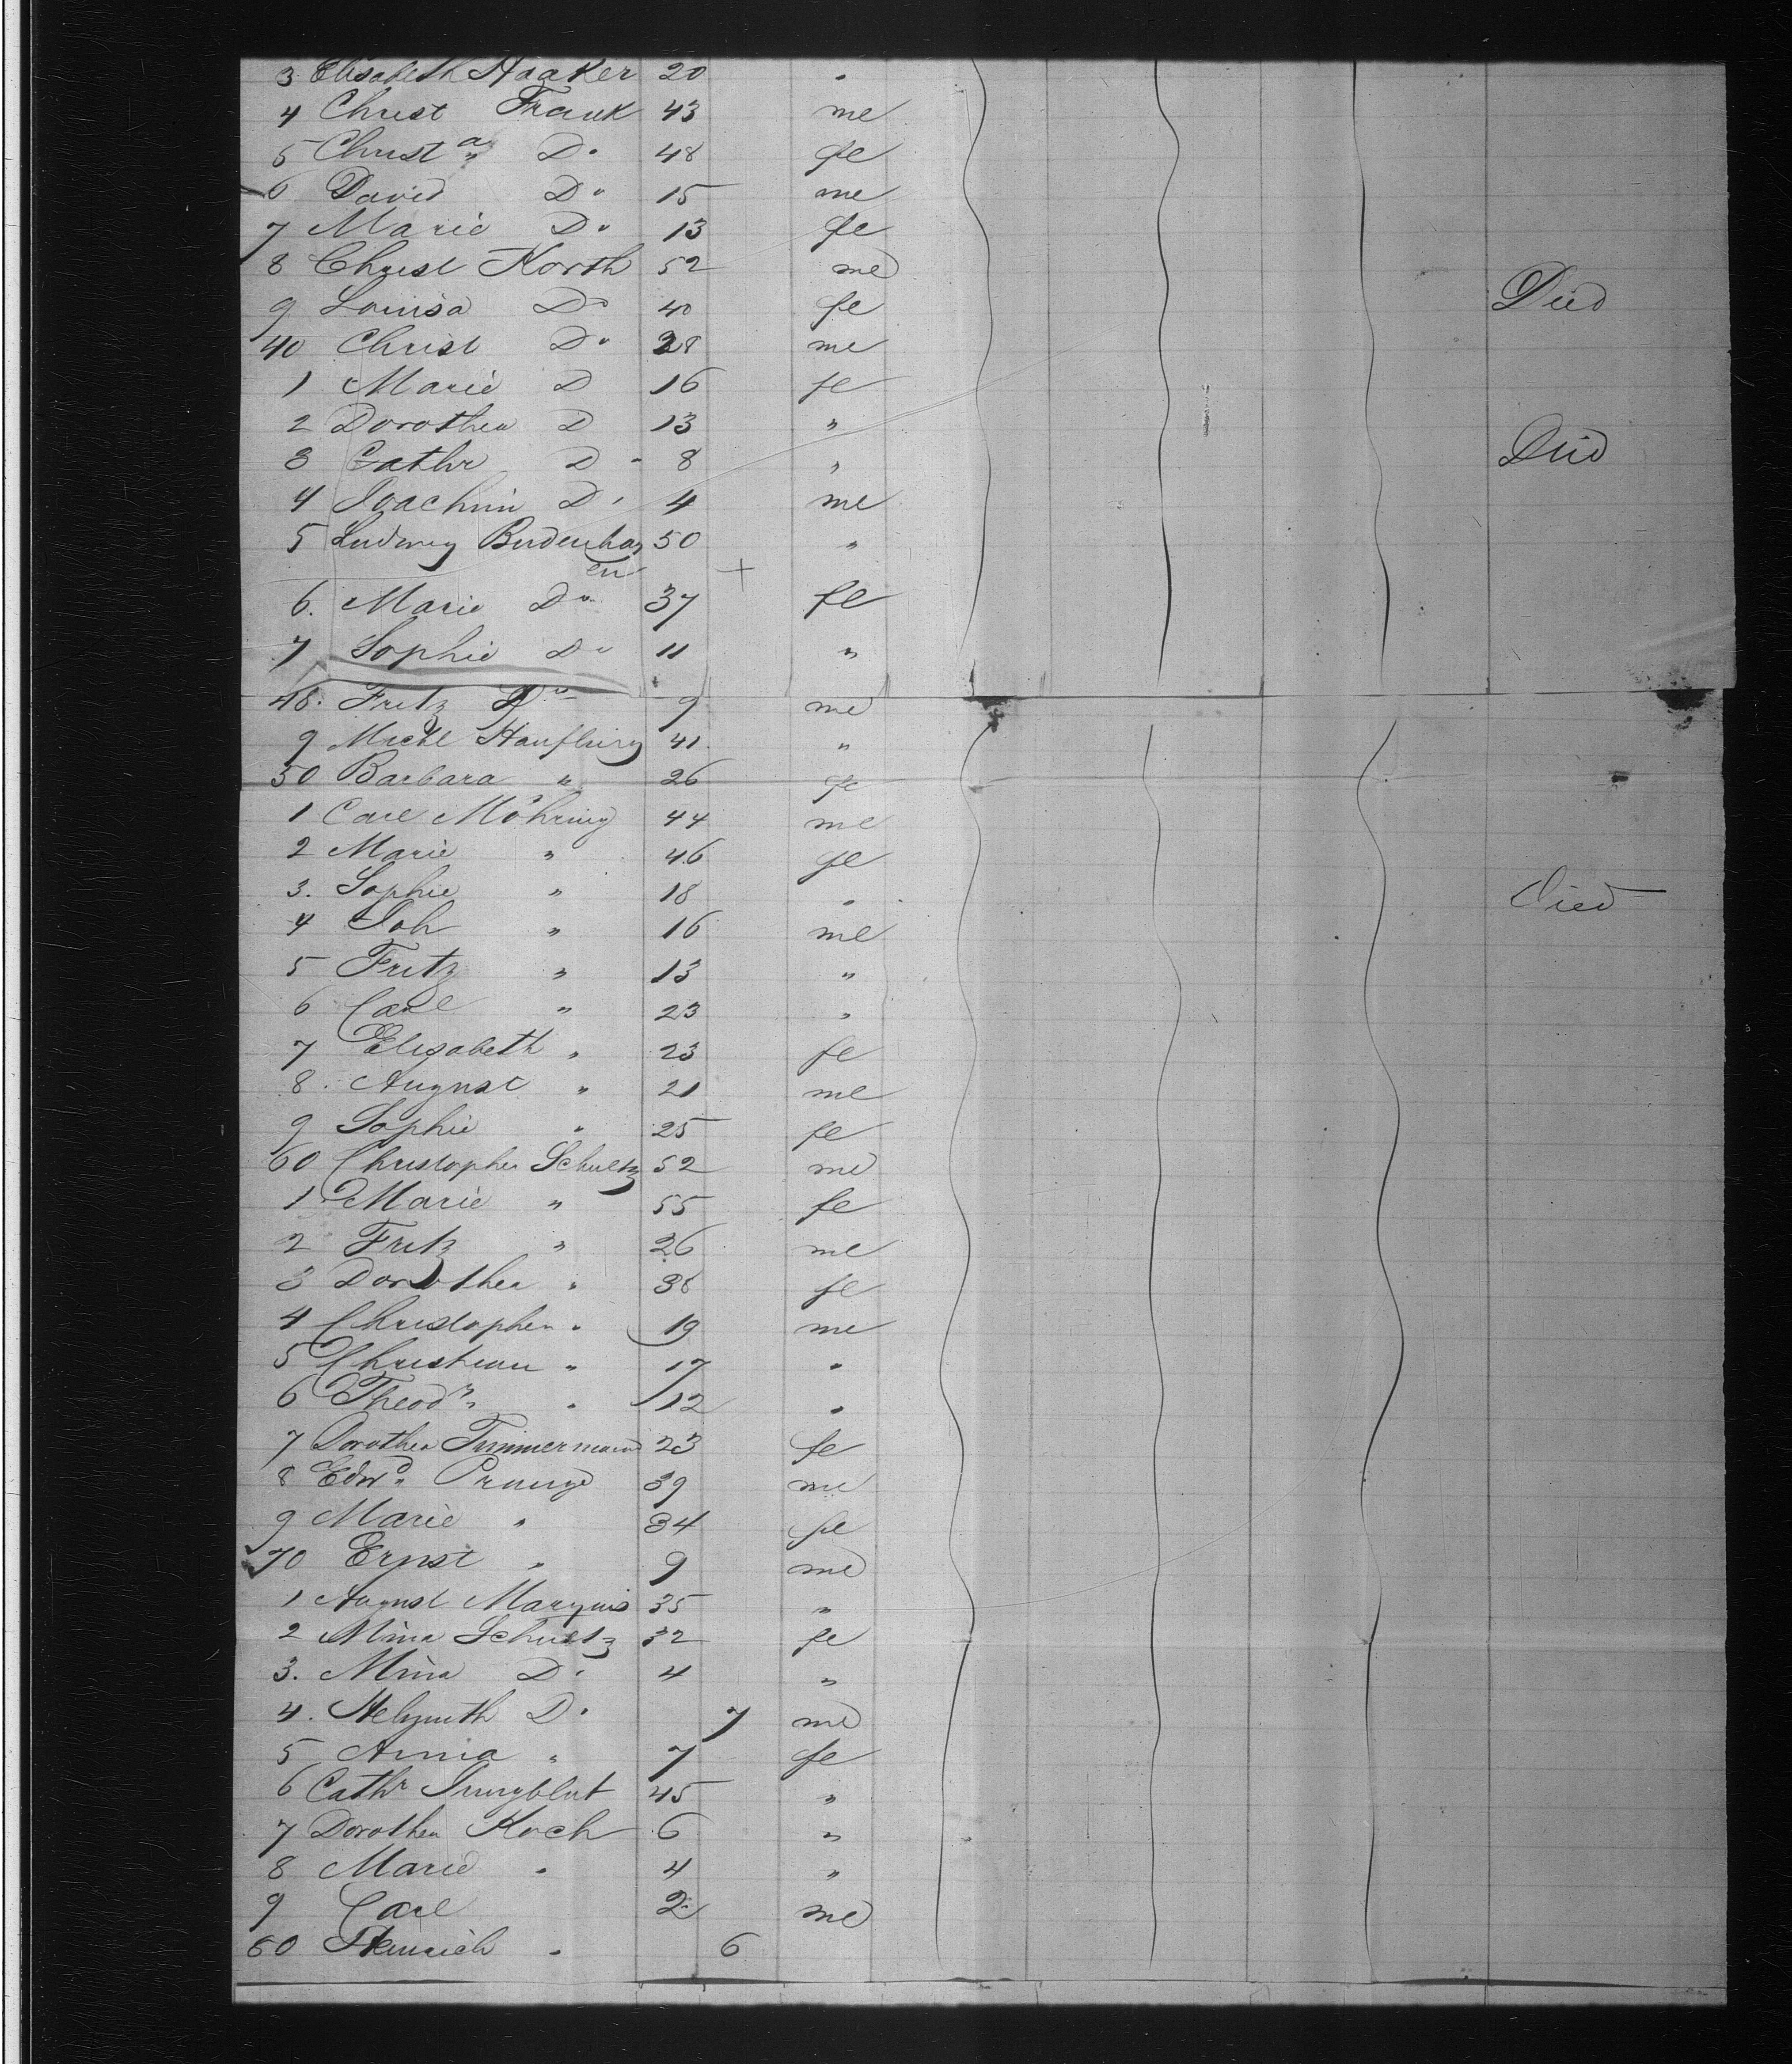 3 Elisabeth Haaker 20 "
4 Christ Frank 43 me
5 Christa " Do 48 fe
6 David Do 15 me
7 Marie Do 13 fe
8 Christ Korth 52 me
9 Louisa Do 40 fe Died
40 Christ Do 28 me
1 Marie D 16 fe
2 Dorothea D 13 "
3 Cathr D 8 " Died
4 Joachim Do 4 me
5 Ludwig 50 "
6. Marie Do 37 fe
7 Sophie Do 11 "
48. Fritz Do 9 me
9 Michl 41 "
50 Barbara " 26 fe
1 Carl Möhring 44 me
2 Marie " 46 fe
3. Sophie " 18 " Died
4 Joh " 16 me
5 Fritz " 13 "
6 Carl " 23 "
7 Elisabeth " 23 fe
8. August " 21 me
9 Sophie " 25 fe
60 Christopher Schultz 52 me
1 Marie " 55 fe
2 Fritz " 26 me
3 Dorothea " 38 fe
4 Christopher " 19 me
5 Christian " 17 "
6 Theodr " 12 "
7 Dorothea Timmermann 23 fe
8 Edwd Prange 39 me
9 Marie " 34 fe
70 Ernst " 9 me
1 August Marquis 35 "
2 Mina Schultz 32 fe
3. Mina Do 4 "
4. Helmuth Do 7 me
5 Anna " 7 fe
6 Cathr Jungblut 45 "
7 Dorothea Koch 6 "
8 Marie " 4 "
9 Carl 2 me
80 Heinrich " 6